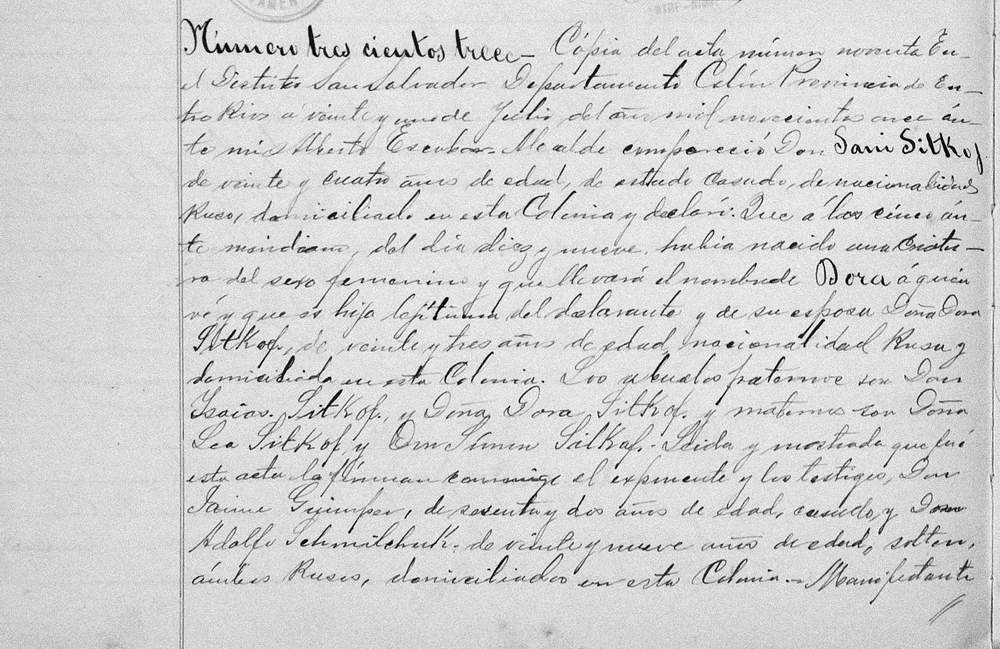 AMEN
ENTRE-RIOS
Número tres cientos trece - Cópia del acta número noventa En
el Distrito San Salvador Departamento Colón Provincia de En-
tre Rios a veinte y uno de Julio del año mil novecientos once án-
te mi Alberto Escobar Alcalde compareció Don Sani Sitkof
de veinte y cuatro años de edad, de estado casado, de nacionalidad
Ruso, domiciliado en esta Colonia y declaró: Que á las cinco án-
te meridiano, del dia diez y nueve. habia nacido una criatu-
ra del sexo femenino y que llevará el nombre de Dora á quien
vé y que és hija lejitima del declarante y de su esposa Doña Dora
Sitkof, de veinte y tres años de edad, nacionalidad Rusa y
domiciliada en esta Colonia. Los abuelos paternos son Don
Isaias Sitkof, y Doña Dora Sitkof, y maternos son Doña
Lea Sitkof y Don Sitkof. Leida y mostrada que fué
esta acta la firman conmigo el exponente y los testigos, Don
Jaime Guimper, de sesenta y dos años de edad, casado, y Don
Adolfo Schmilchuk. de veinte y nueve años de edad, soltero,
ámbos Rusos, domiciliados en esta Colonia. - Manifestante